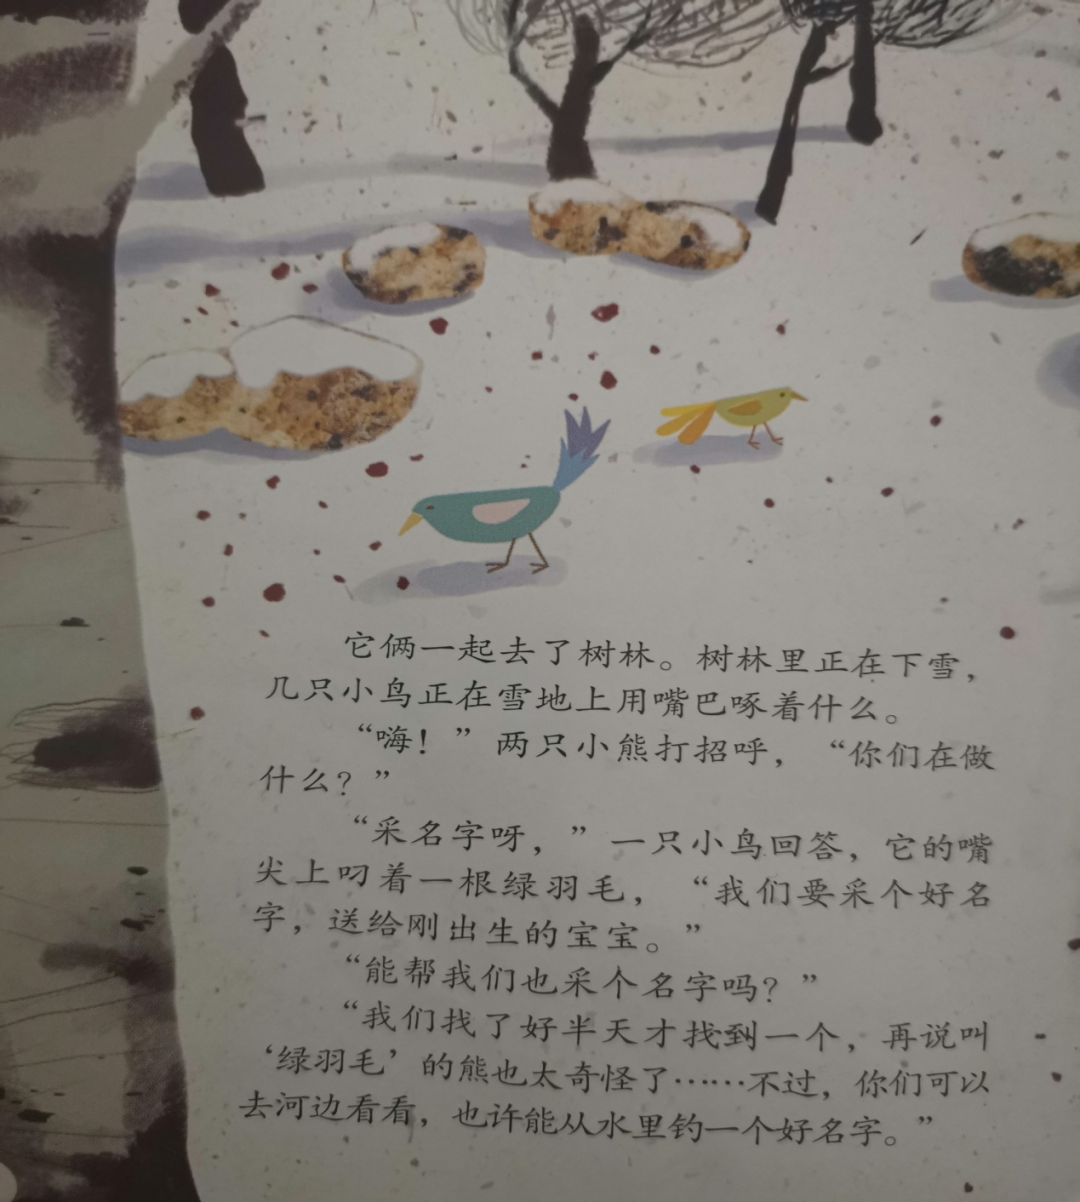 它俩一起去了树林。树林里正在下雪，
几只小鸟正在雪地上用嘴巴啄着什么。
“嗨！”两只小熊打招呼，“你们在做
什么？”
“采名字呀，”一只小鸟回答，它的嘴
尖上叼着一根绿羽毛，“我们要采个好名
字，送给刚出生的宝宝。”
“能帮我们也采个名字吗？”
“我们找了好半天才找到一个，再说叫
‘绿羽毛’的熊也太奇怪了……不过，你们可以
去河边看看，也许能从水里钓一个好名字。”